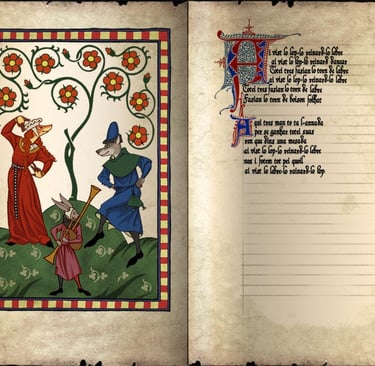 Ai vist lo lop, lo reinard, lo lebre
ai vist lo lop, lo reinard dansar
totei tres fasian lo torn de l'abre
ai vist lo lop, lo reinard, lo lebre
totei tres fasian lo torn de l'abre
fasian lo torn de boison folhat
Aqui tres man te ta l'annada
per se ganhar totei suas
ren que dins una mesada
ai vist lo lop, lo reinard, lo lebre
nos i fotem tot pel quol
ai vist lo lebre, lo reinard, lo lop